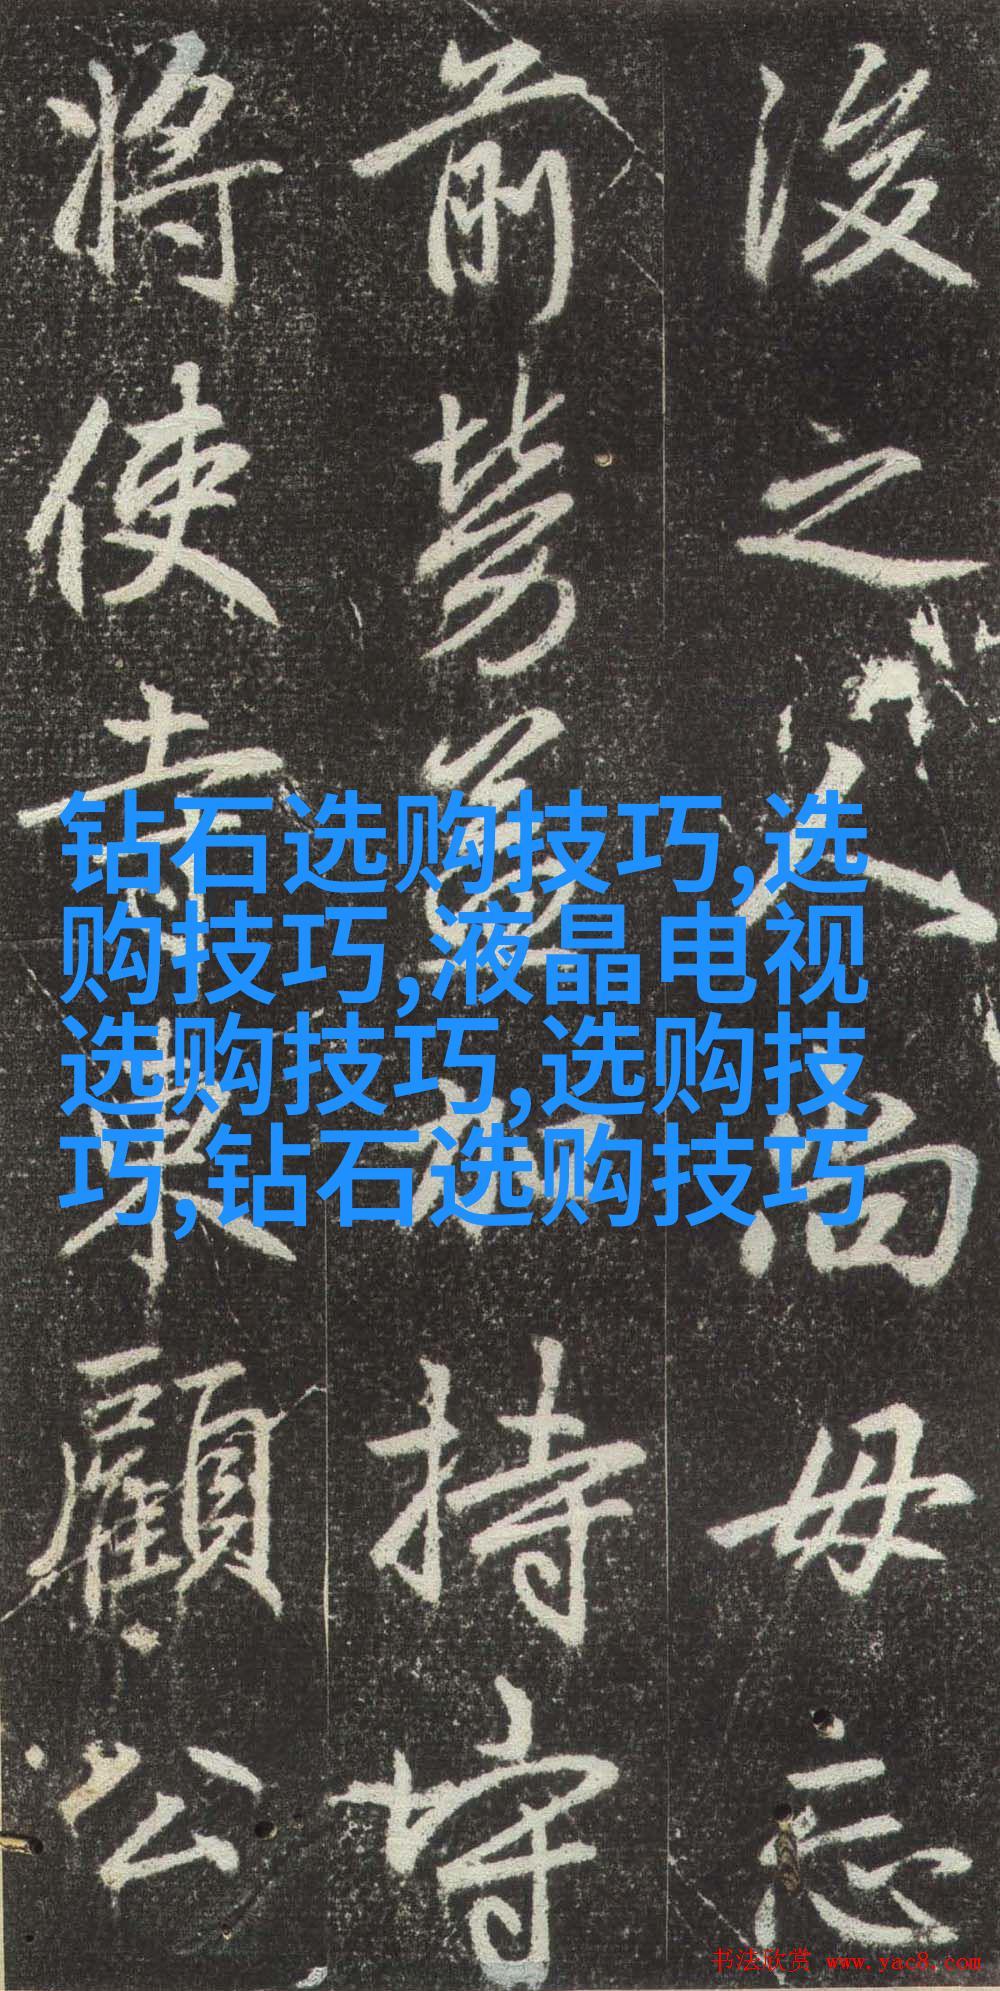 後之人尚毋忘
前勞益持守
將使顧公
钻石选购技巧,选
购技巧,液晶电视
选购技巧,选购技
巧,钻石选购技巧
书法欣赏 www.yac8.com